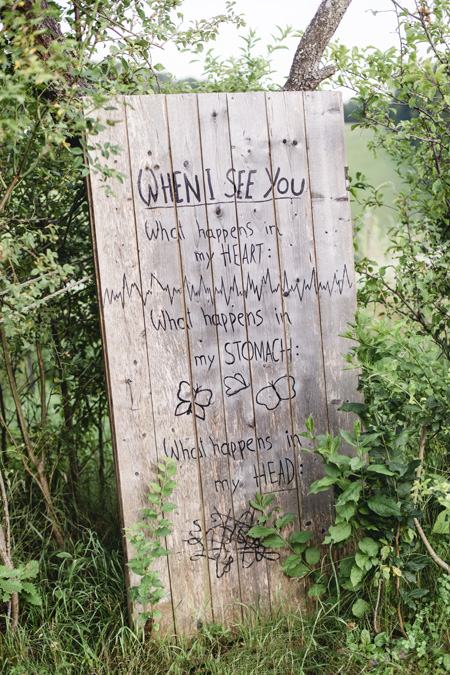 WHEN I SEE YOU
What happens in
my HEART:
What happens in
my STOMACH:
What happens in
my HEAD: